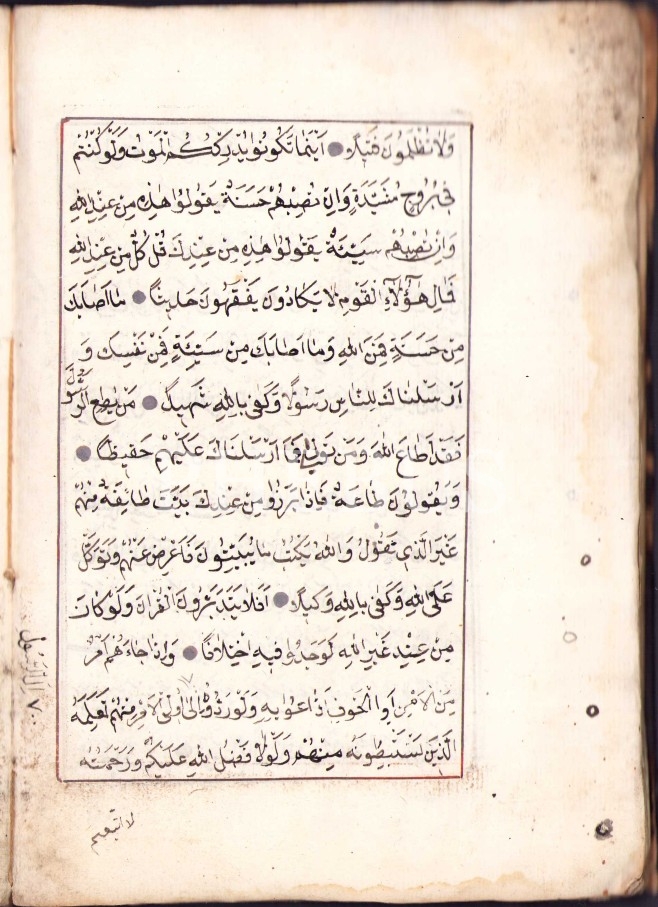 وَلَا تُظْلَمُونَ فَتِيلًا ● اَيْنَمَا تَكُونُوا يُدْرِكْكُمُ الْمَوْتُ وَلَوْ كُنْتُمْ
فِي بُرُوجٍ مُشَيَّدَةٍ وَاِنْ تُصِبْهُمْ حَسَنَةٌ يَقُولُوا هٰذِهِ مِنْ عِنْدِ اللهِ
وَاِنْ تُصِبْهُمْ سَيِّئَةٌ يَقُولُوا هٰذِهِ مِنْ عِنْدِكَ قُلْ كُلٌّ مِنْ عِنْدِ اللهِ
فَالِ هٰؤُلَاءِ الْقَوْمِ لَا يَكَادُونَ يَفْقَهُونَ حَدِيثًا ● مَا اَصَابَكَ
مِنْ حَسَنَةٍ فَمِنَ اللهِ وَمَا اَصَابَكَ مِنْ سَيِّئَةٍ فَمِنْ نَفْسِكَ وَ
اَرْسَلْنَاكَ لِلنَّاسِ رَسُولًا وَكَفٰى بِاللهِ شَهِيدًا ● مَنْ يُطِعِ الرَّسُولَ
فَقَدْ اَطَاعَ اللهَ وَمَنْ تَوَلّٰى فَمَا اَرْسَلْنَاكَ عَلَيْهِمْ حَفِيظًا ●
وَيَقُولُونَ طَاعَةٌ فَاِذَا بَرَزُوا مِنْ عِنْدِكَ بَيَّتَ طَائِفَةٌ مِنْهُمْ
غَيْرَ الَّذِي تَقُولُ وَاللهُ يَكْتُبُ مَا يُبَيِّتُونَ فَاَعْرِضْ عَنْهُمْ وَتَوَكَّلْ
عَلَى اللهِ وَكَفٰى بِاللهِ وَكِيلًا ● اَفَلَا يَتَدَبَّرُونَ الْقُرْاٰنَ وَلَوْ كَانَ
مِنْ عِنْدِ غَيْرِ اللهِ لَوَجَدُوا فِيهِ اخْتِلَافًا ● وَاِذَا جَاءَهُمْ اَمْرٌ
مِنَ الْاَمْنِ اَوِ الْخَوْفِ اَذَاعُوا بِهِ وَلَوْ رَدُّوهُ اِلٰى اُولِى الْاَمْرِ مِنْهُمْ لَعَلِمَهُ
الَّذِينَ يَسْتَنْبِطُونَهُ مِنْهُمْ وَلَوْلَا فَضْلُ اللهِ عَلَيْكُمْ وَرَحْمَتُهُ
الى الرَّسُولِ
لاتبعتم